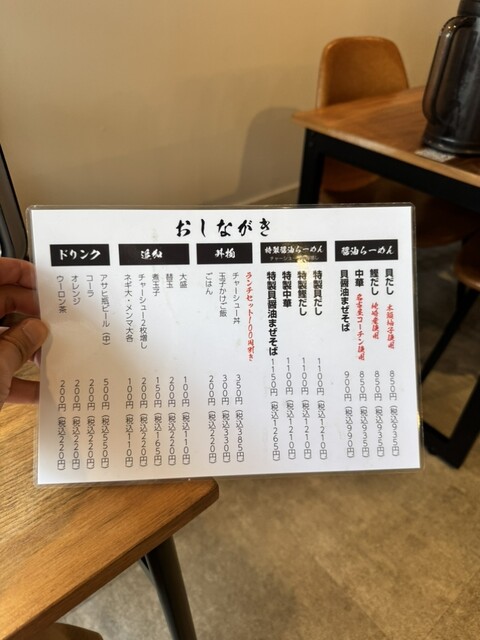 おしながき
醤油らーめん
貝だし 木頭柚子使用 850円(税込935円)
鰹だし 枕崎産使用 850円(税込935円)
中華 名古屋コーチン使用 850円(税込935円)
貝醤油まぜそば 900円(税込990円)
特製醤油らーめん
特製貝だし 1100円(税込1210円)
特製鰹だし 1100円(税込1210円)
特製中華 1100円(税込1210円)
特製貝醤油まぜそば 1150円(税込1265円)
丼物
ランチセット100円引き
チャーシュー丼 350円(税込385円)
玉子かけご飯 300円(税込330円)
ごはん 200円(税込220円)
追加
大盛 100円(税込110円)
替玉 200円(税込220円)
煮玉子 150円(税込165円)
チャーシュー2枚増し 200円(税込220円)
ネギ大・メンマ大各 100円(税込110円)
ドリンク
アサヒ瓶ビール(中) 500円(税込550円)
コーラ 200円(税込220円)
オレンジ 200円(税込220円)
ウーロン茶 200円(税込220円)